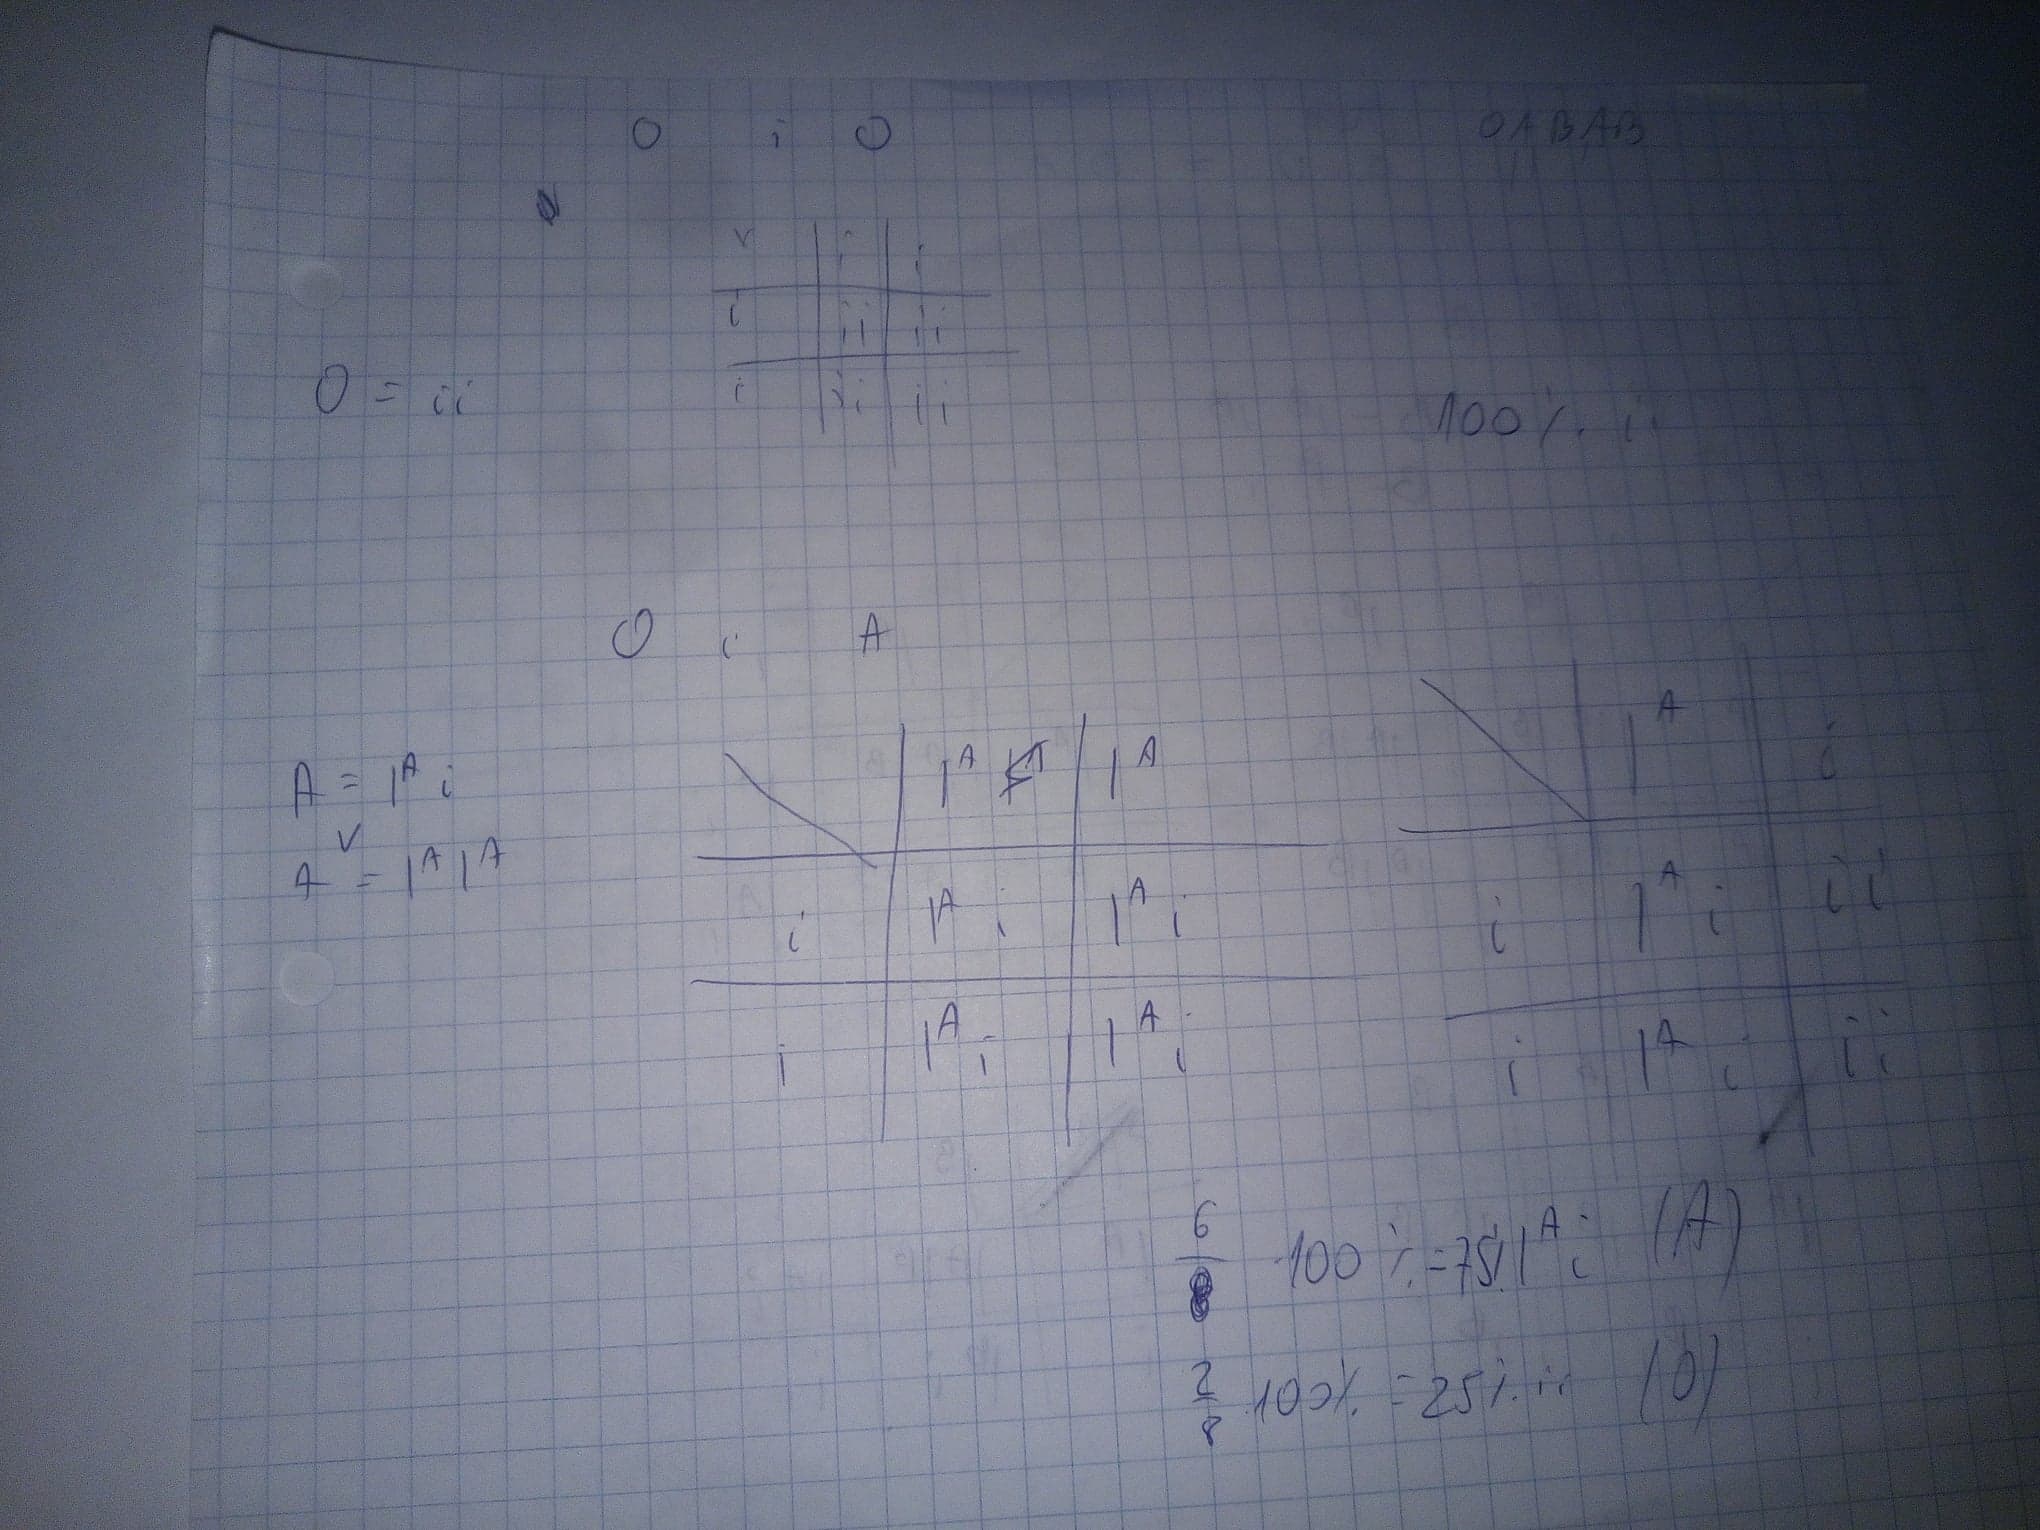 O i O
O A B AB
v i i
i ii ii
O = ii
i ii ii
100 % ii
O i A
A = I^A i
v
A = I^A I^A
I^A I^A
i I^A i I^A i
i I^A i I^A i
I^A i
i I^A i ii
i I^A i ii
6/8 · 100 % = 75% I^A i (A)
2/8 · 100% = 25% ii (O)